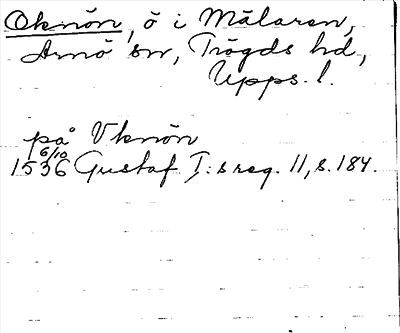 Oknön, ö i Mälaren,
Arnö sn, Trögds hd,
Upps. l.
på Vknön
6/10
1536 Gustaf I:s reg. 11, s. 184.